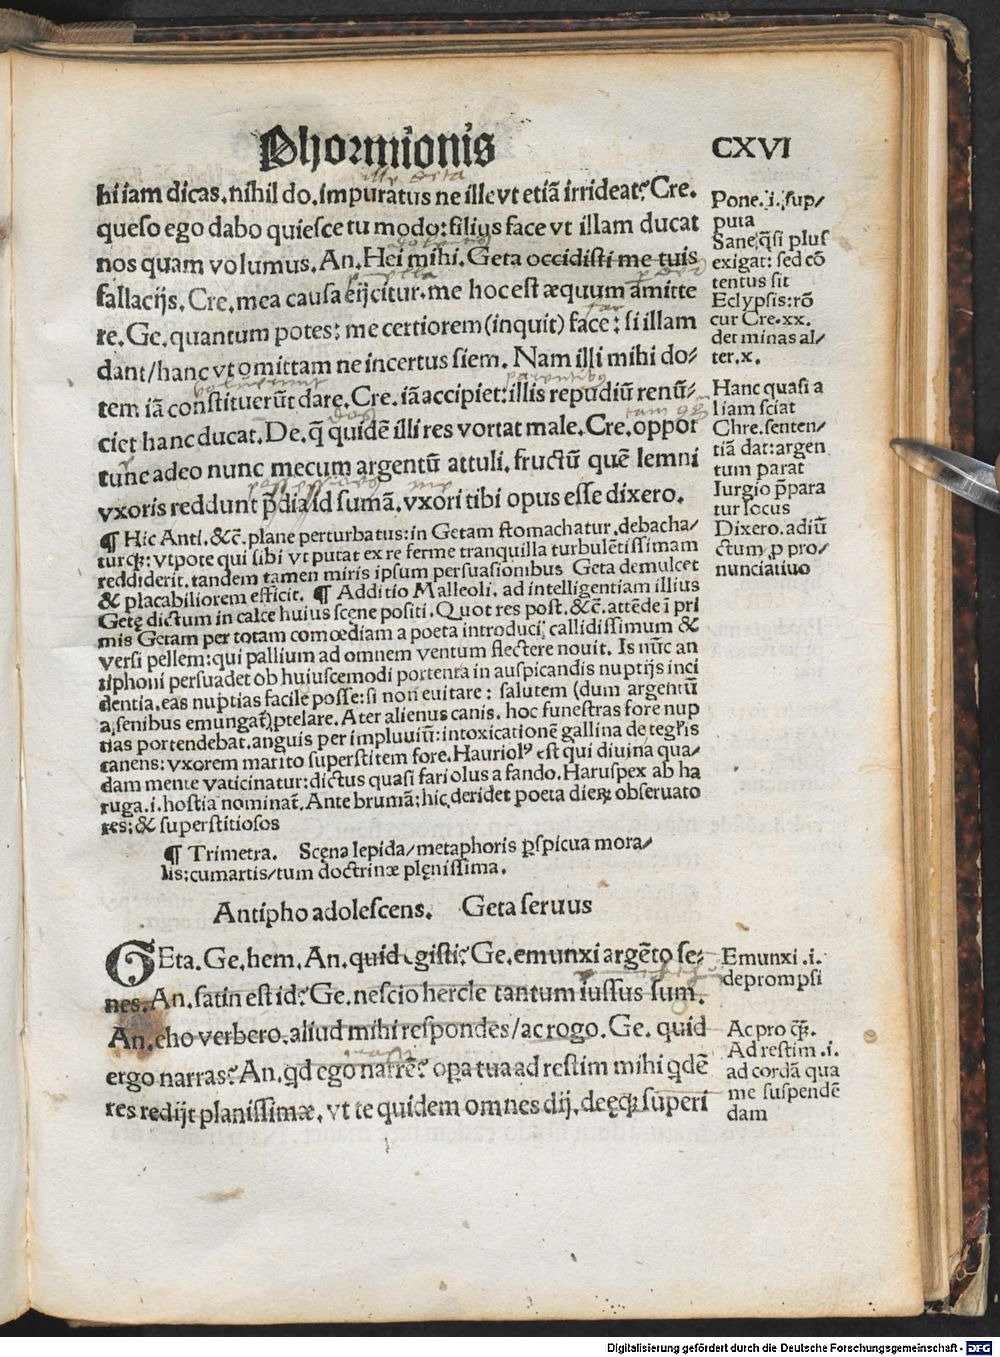 Phormionis
CXVI
hi iam dicas. nihil do. impuratus ne ille vt etiā irrideat? Cre.
queso ego dabo quiesce tu modo: filius face vt illam ducat
nos quam volumus. An. Hei mihi. Geta occidisti me tuis
fallacijs. Cre. mea causa eijcitur. me hoc est æquum amitte
re. Ge. quantum potes: me certiorem (inquit) face: si illam
dant/hanc vt omittam ne incertus siem. Nam illi mihi do⸗
tem iā constituerūt dare. Cre. iā accipiet: illis repudiū renū⸗
ciet hanc ducat. De. q̄ quidē illi res vortat male. Cre. oppor
tune adeo nunc mecum argentū attuli. fructū quē lemni
vxoris reddunt p̄dia id sumā. vxori tibi opus esse dixero.
Pone .i. sup/
puta
Sane q̄si plus
exigat: sed cō
tentus sit
Eclypsis: rō
cur Cre. xx.
det minas al/
ter. x.
Hanc quasi a
liam sciat
Chre. senten/
tiā dat: argen
tum parat
Iurgio p̄para
tur locus
Dixero. adiū
ctum p pro/
nunciatiuo
¶ Hic Anti. &c̄. plane perturbatus: in Getam stomachatur. debacha/
turqꝫ: vtpote qui sibi vt putat ex re ferme tranquilla turbulētissimam
reddiderit. tandem tamen miris ipsum persuasionibus Geta demulcet
& placabiliorem efficit. ¶ Additio Malleoli. ad intelligentiam illius
Getę dictum in calce huius scęne positi. Quot res post. &c̄. attēde ī pri
mis Getam per totam comœdiam a poeta introduci callidissimum &
versi pellem: qui pallium ad omnem ventum flectere nouit. Is nūc an
tiphoni persuadet ob huiuscemodi portenta in auspicandis nuptijs inci
dentia. eas nuptias facile posse: si non euitare: salutem (dum argentū
a senibus emungat̄) ptelare. Ater alienus canis. hoc funestras fore nup
tias portendebat. anguis per impluuiū: intoxicationē gallina de tegl̄is
canens: vxorem marito superstitem fore. Hauriolꝰ est qui diuina qua/
dam mente vaticinatur: dictus quasi fari olus a fando. Haruspex ab ha
ruga .i. hostia nominat̄. Ante brumā: hic deridet poeta dieꝝ obseruato
res: & superstitiosos
¶ Trimetra. Scęna lepida/metaphoris ꝑspicua mora/
lis: cum artis/tum doctrinæ plęnissima.
Antipho adolescens. Geta seruus
GEta. Ge. hem. An. quid egisti? Ge. emunxi argēto se⸗
nes. An. satin est id? Ge. nescio hercle tantum iussus sum.
An. eho verbero. aliud mihi respondes/ac rogo. Ge. quid
ergo narras? An. qd ego narrē? opa tua ad restim mihi qdē
res redijt planissimæ. vt te quidem omnes dij. deęqꝫ superi
Emunxi .i.
deprompsi
Ac pro qꝫ.
Ad restim .i.
ad cordā qua
me suspendē
dam
Digitalisierung gefördert durch die Deutsche Forschungsgemeinschaft - DFG